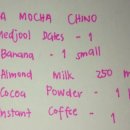 A MOCHA CHINO
Medjool Dates - 1
Banana - 1 small
Almond Milk 250 m
Cocoa Powder - 1
Instant Coffee - 1